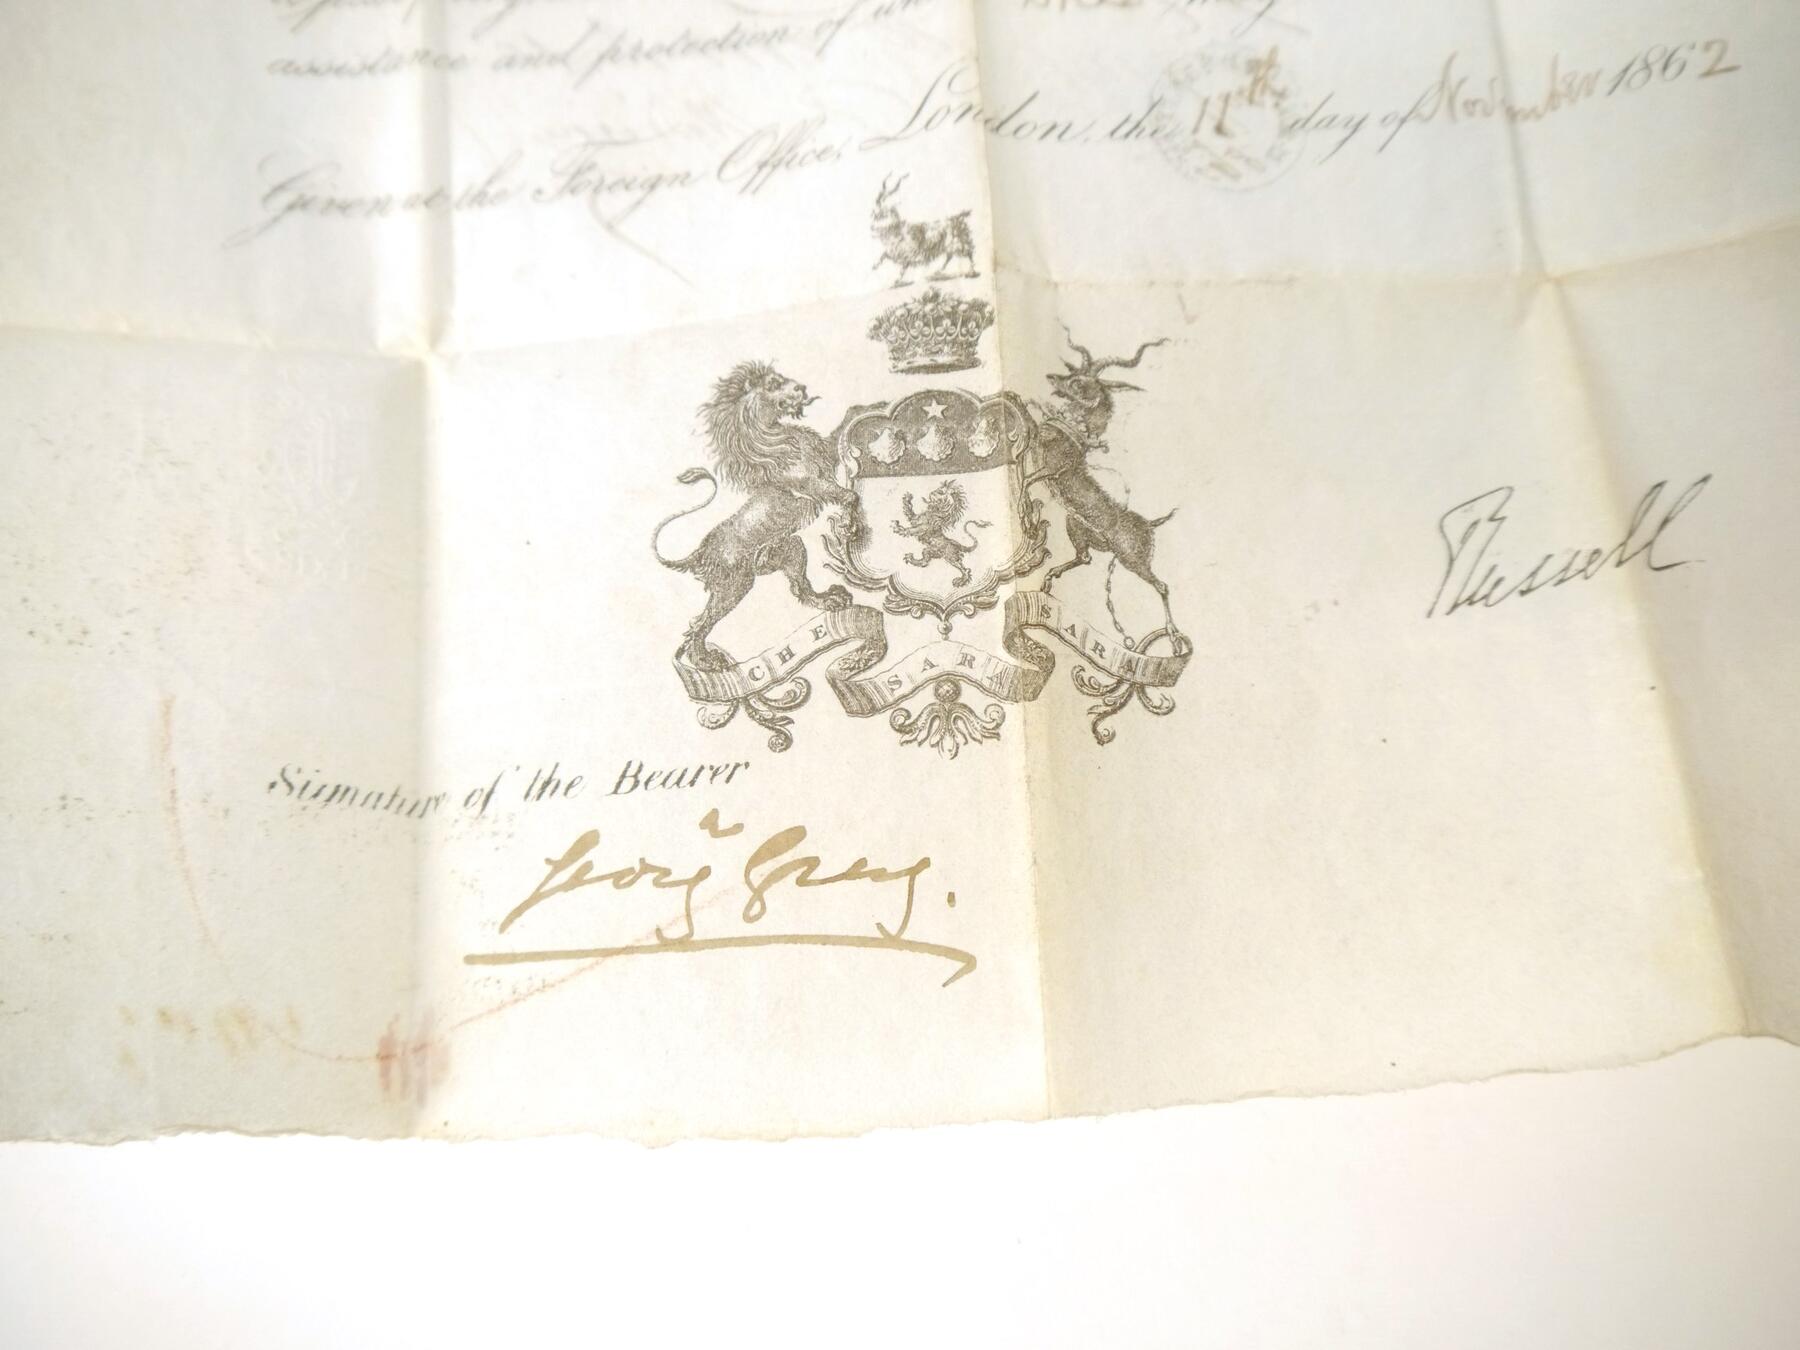 assistance and protection of
Given at the Foreign Office, London, the 11th day of November 1862
CHE SARA SARA
Russell
Signature of the Bearer
Georg Grey.